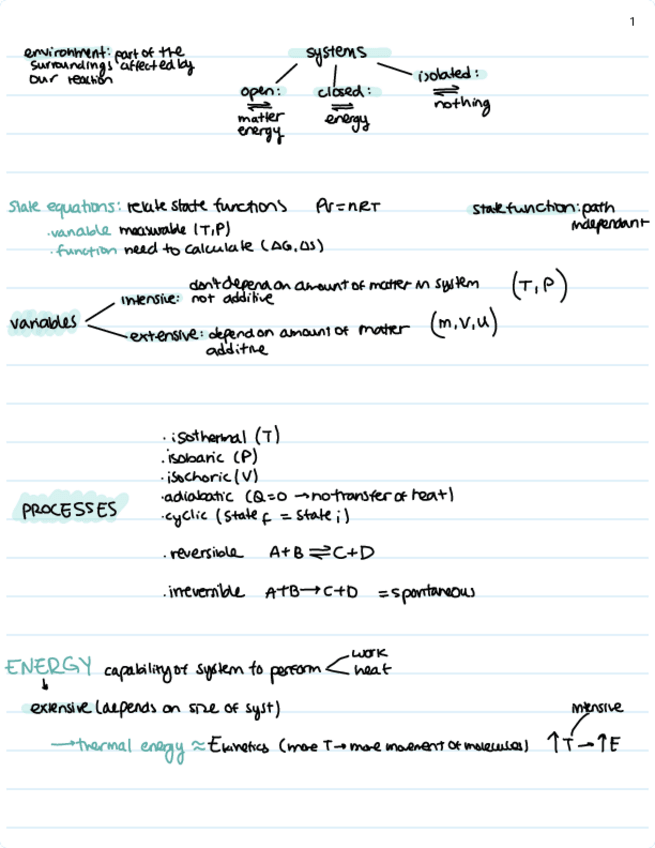 1
environment: part of the
surroundings affected by
our reaction
systems
open:
⇌
matter
energy
closed:
⇌
energy
isolated:
⇌
nothing
State equations: relate state functions PV=nRT
state function: path
independant
·variable measurable (T,P)
·function need to calculate (ΔG,ΔS)
variables
intensive: don't depend on amount of matter in system (T,P)
not additive
extensive: depend on amount of matter (m,V,U)
additive
PROCESSES
·isothermal (T)
·isobaric (P)
·isochoric (V)
·adiabatic (Q=0 → no transfer of heat)
·cyclic (State f = State i)
·reversible A+B ⇌ C+D
·irreversible A+B → C+D = spontaneous
ENERGY capability of system to perform < work
heat
↓
extensive (depends on size of syst)
intensive
→ thermal energy ≈ Ekinetics (more T → more movement of molecules) ↑T → ↑E